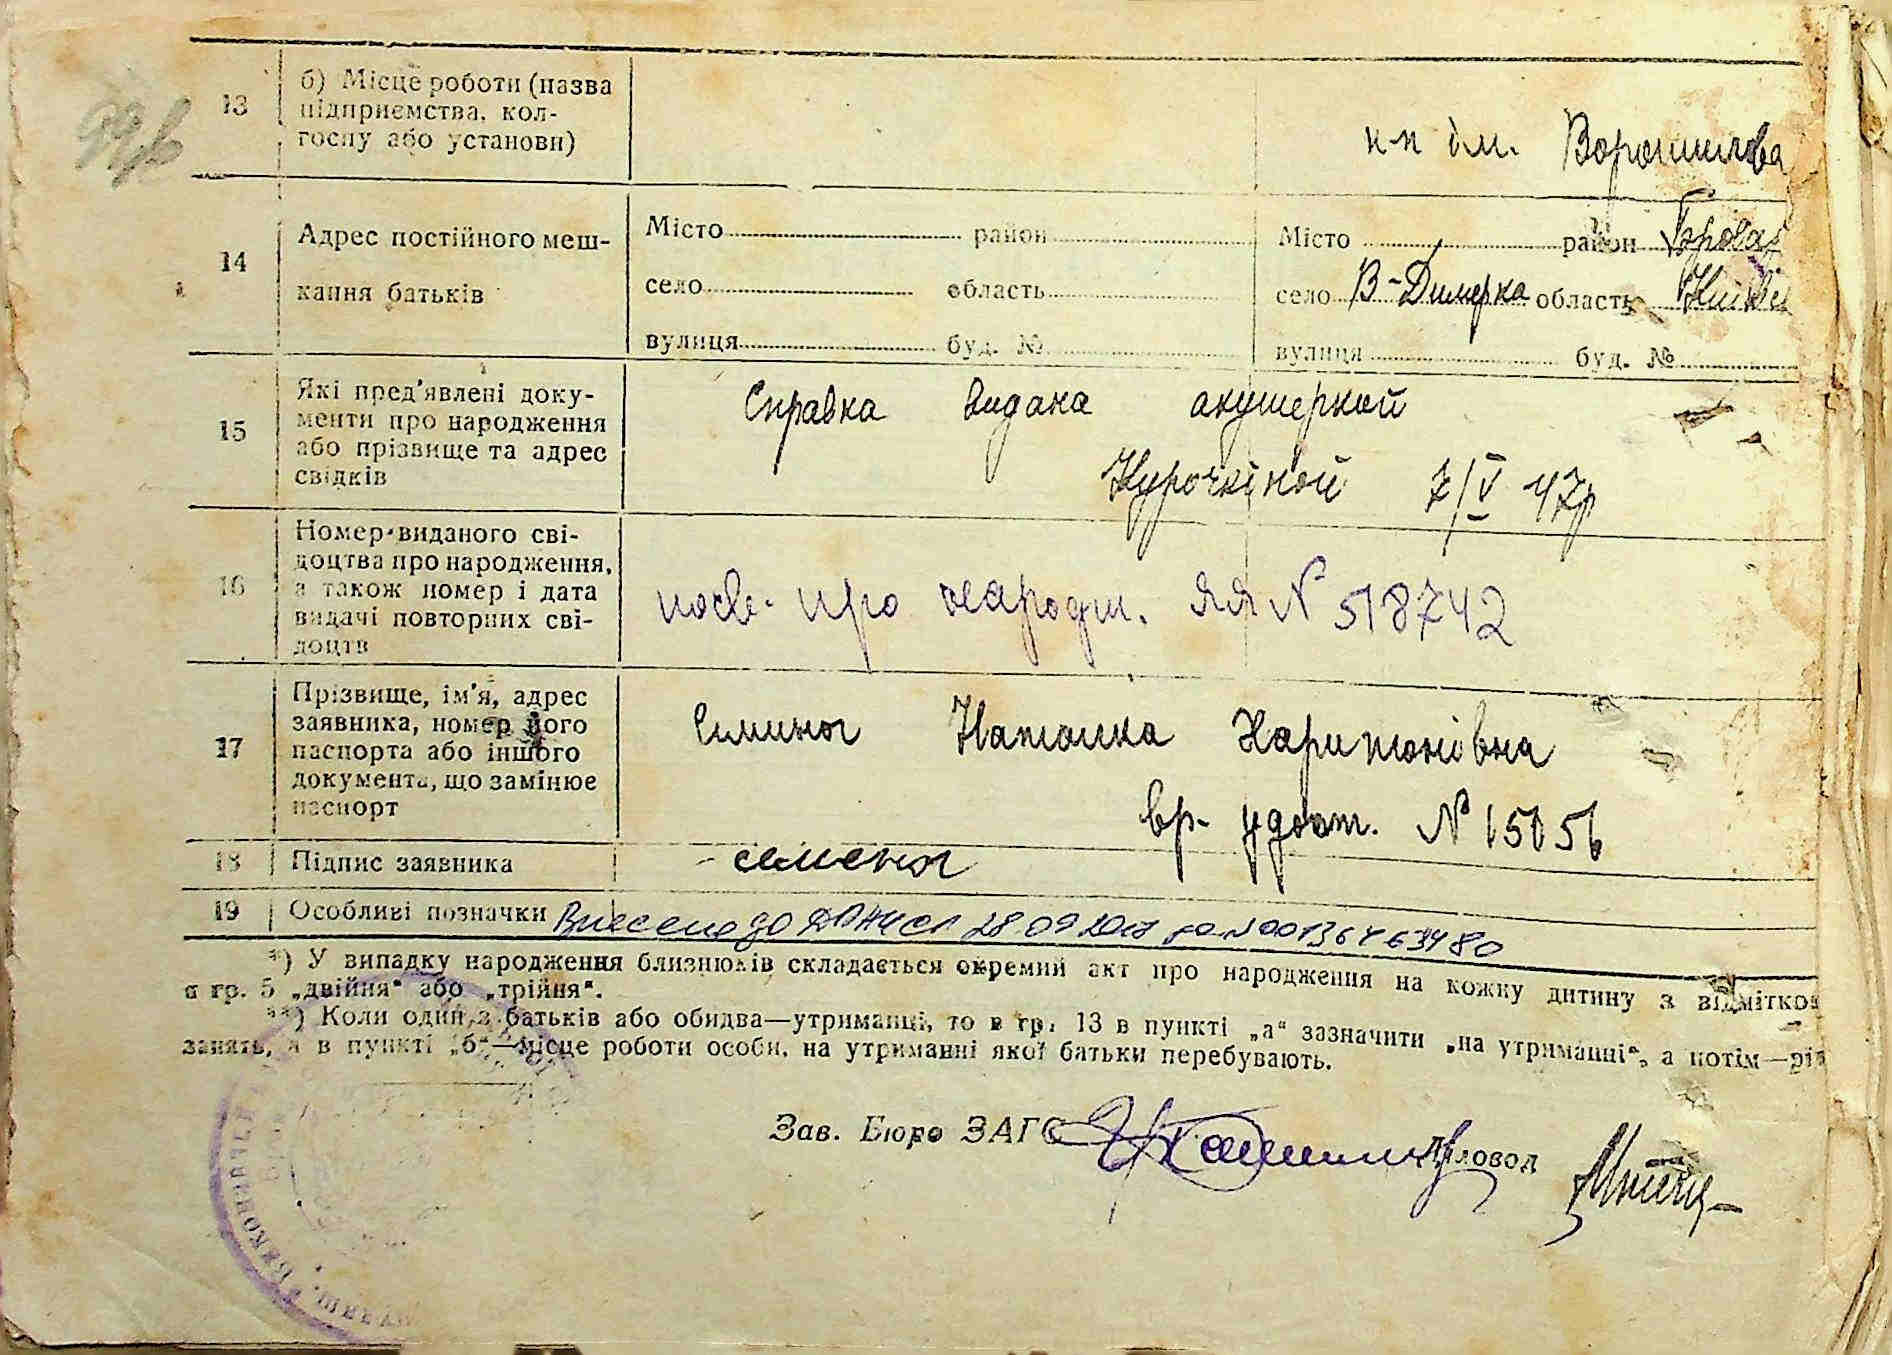 13
б) Місце роботи (назва
підприємства, кол-
госпу або установи)
к-п ім. Ворошилова
14
Адрес постійного меш-
кання батьків
Місто район
село область
вулиця буд. №
Місто район Бровар
село В-Димерка область Київс
вулиця буд. №
15
Які пред'явлені доку-
менти про народження
або прізвище та адрес
свідків
Справка видана акушеркой
Курочкіной 7/V 47р
16
Номер виданого сві-
доцтва про народження,
а також номер і дата
видачі повторних сві-
доцтв
посв. про народж. ЯЯ N 518742
17
Прізвище, ім'я, адрес
заявника, номер його
паспорта або іншого
документа, що замінює
паспорт
Симиног Наталка Харитонівна
вр- удост. N 15056
18
Підпис заявника
семеног
19
Особливі позначки Внесено до ДРАЦСГ 28.09.2017 за N 00136463480
*) У випадку народження близнюків складається окремий акт про народження на кожну дитину з відміткою
в гр. 5 „двійня“ або „трійня“.
**) Коли один з батьків або обидва—утриманці, то в гр. 13 в пункті „а“ зазначити „на утриманні“, а потім—рід
занять, а в пункті „б“—місце роботи особи, на утриманні якої батьки перебувають.
Зав. Бюро ЗАГС
Діловод